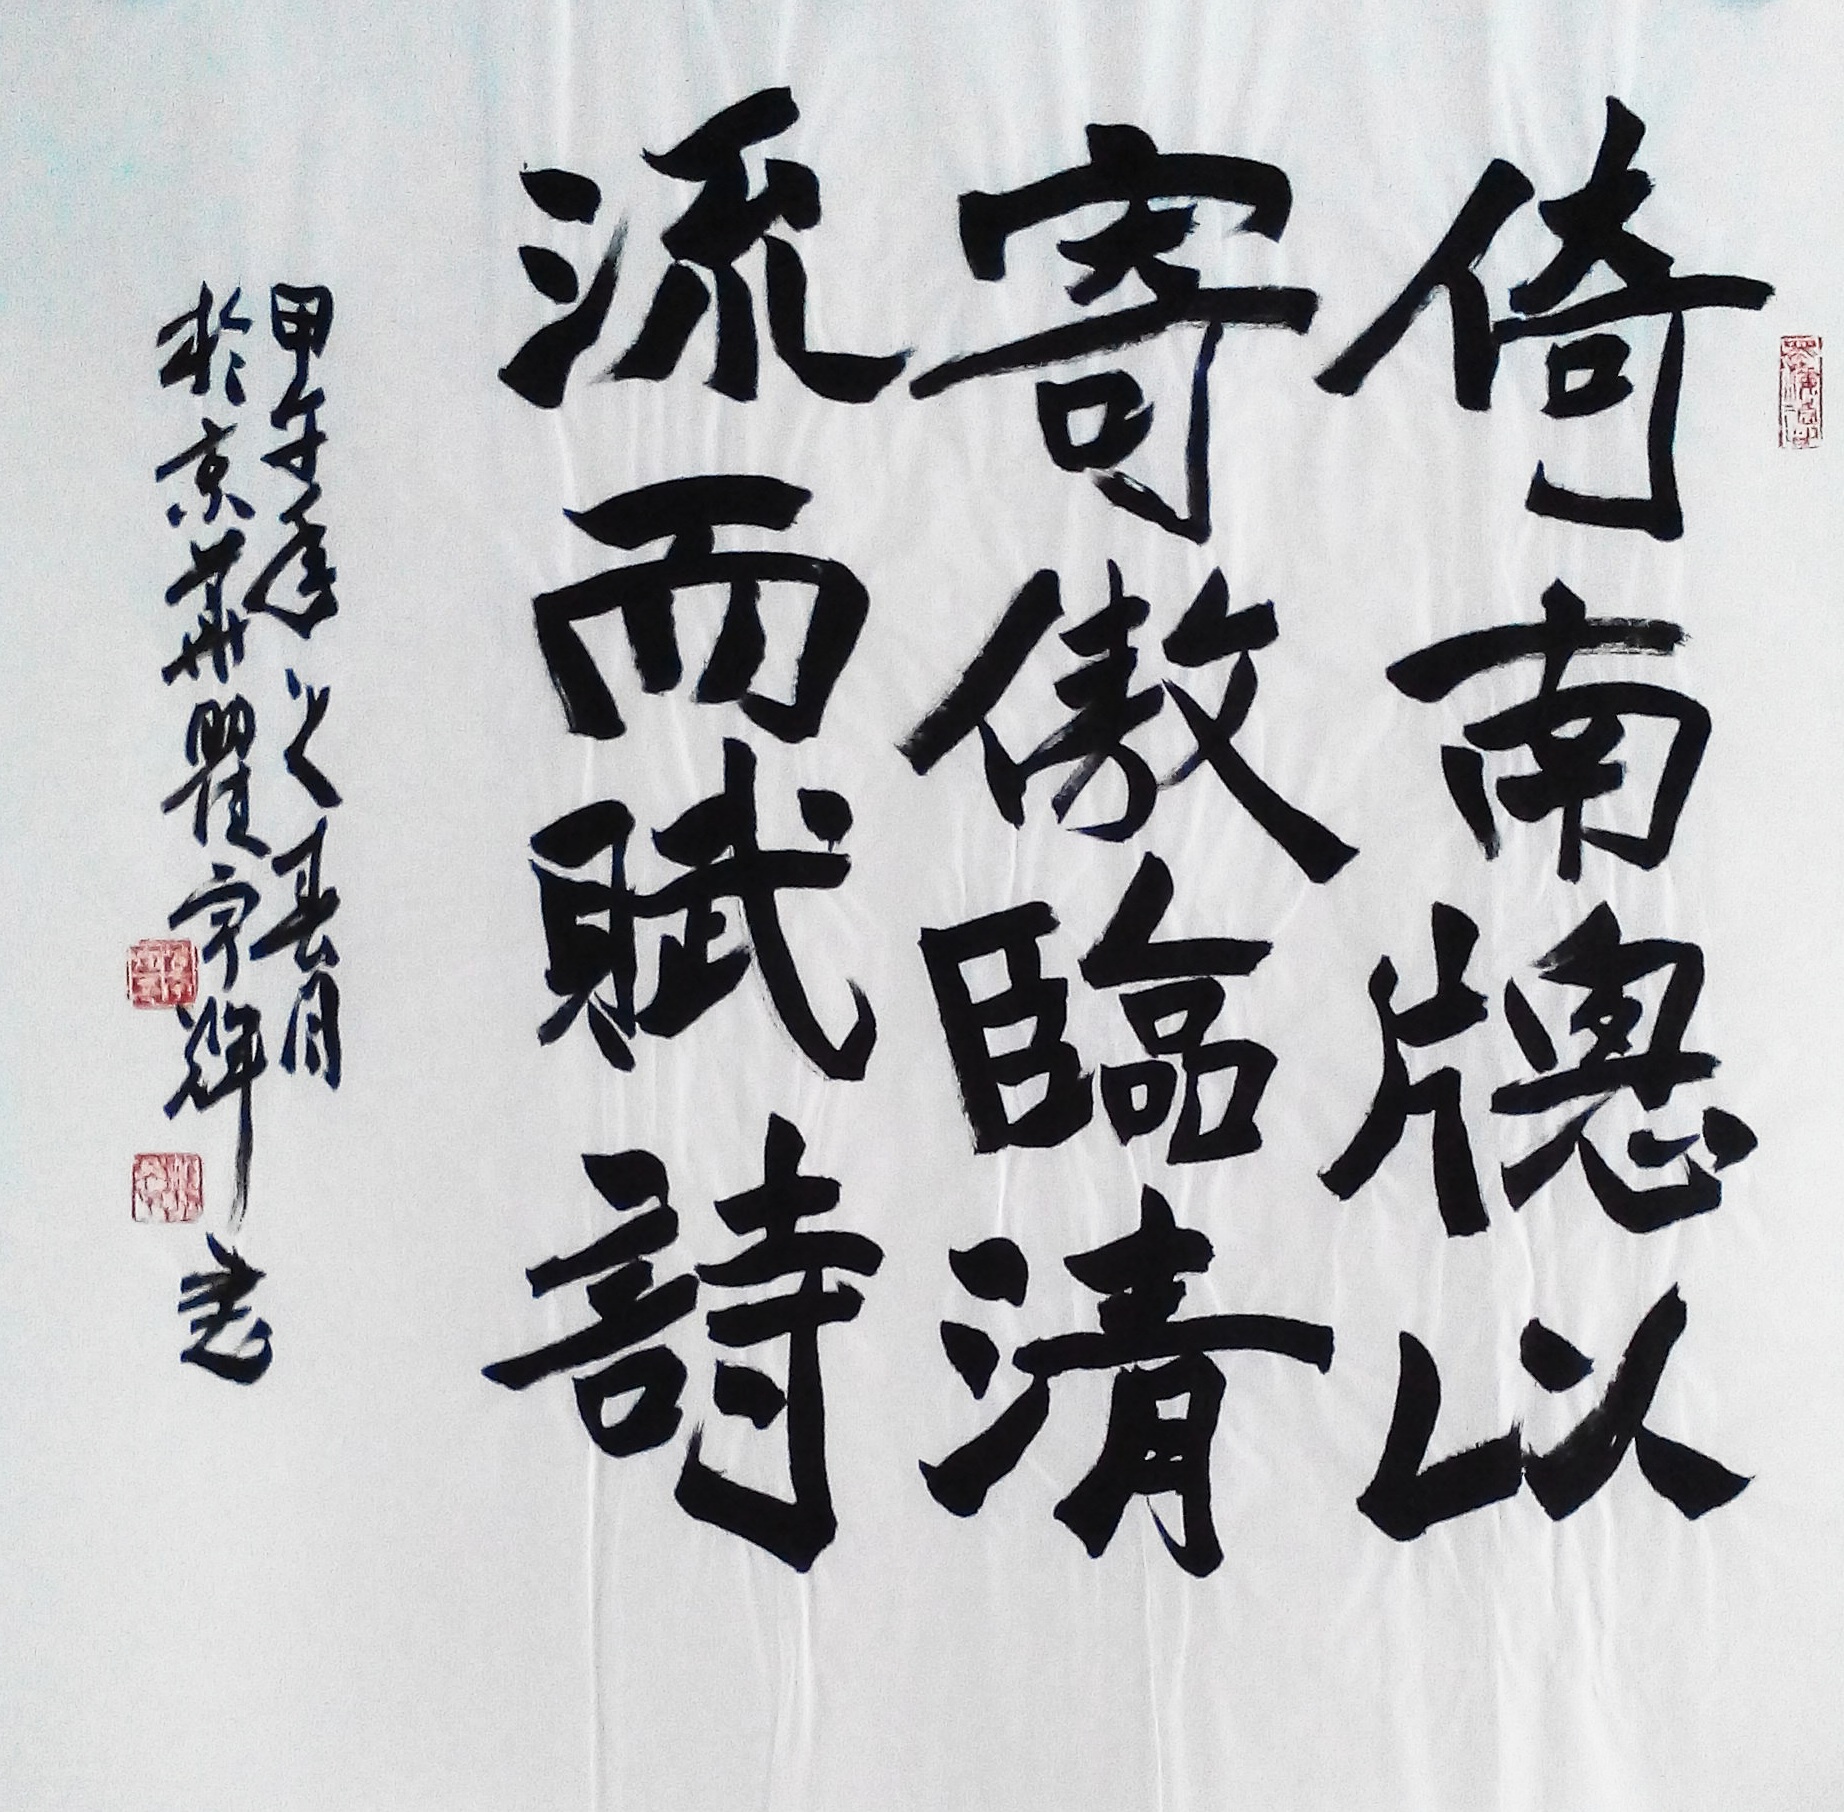 倚南牕以
寄傲臨清
流而賦詩
甲午年之春月
於京華瞿宗輝書